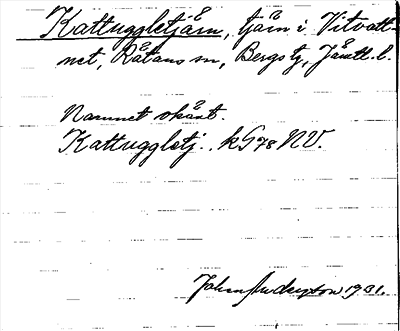 Kattuggletjärn, tjärn i Vitvatt-
net, Rätans sn, Bergs tg, Jämtl. l.
Namnet okänt.
Kattuggletj. kG78 NV.
Johan Anderzton 1931.